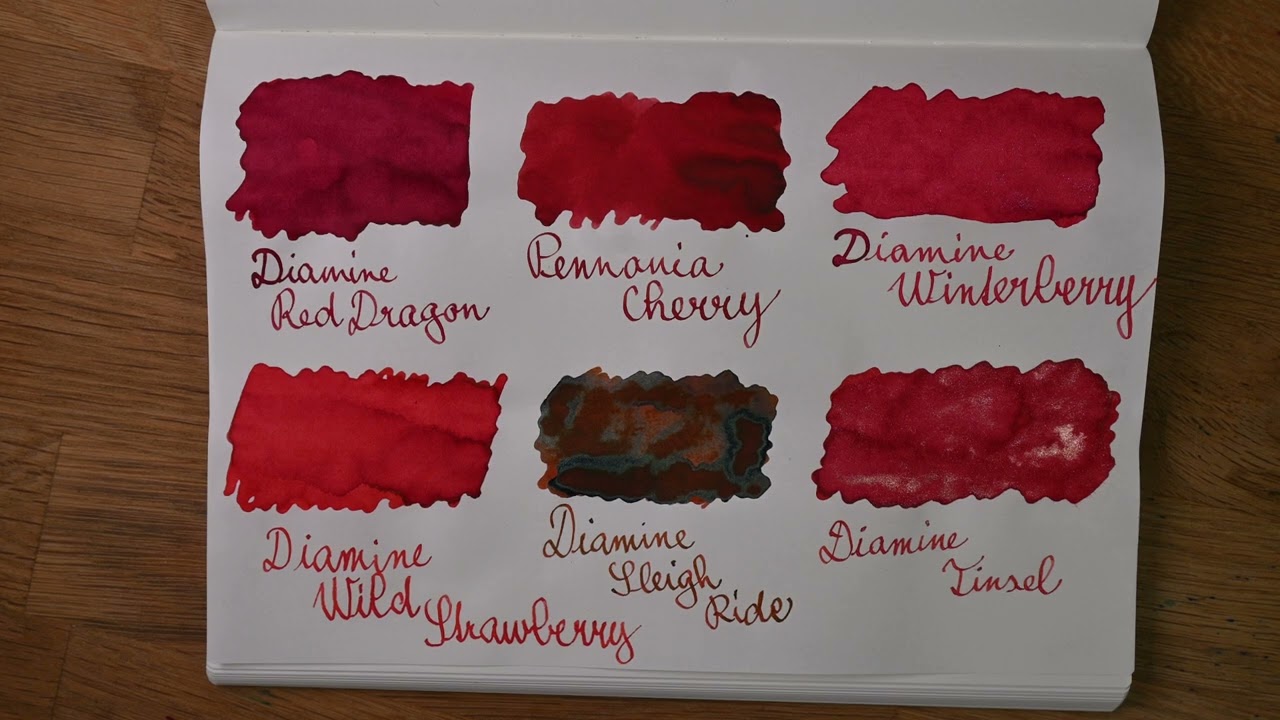 Diamine
Red Dragon
Pennonia
Cherry
Diamine
Winterberry
Diamine
Wild
Strawberry
Diamine
Sleigh
Ride
Diamine
Tinsel